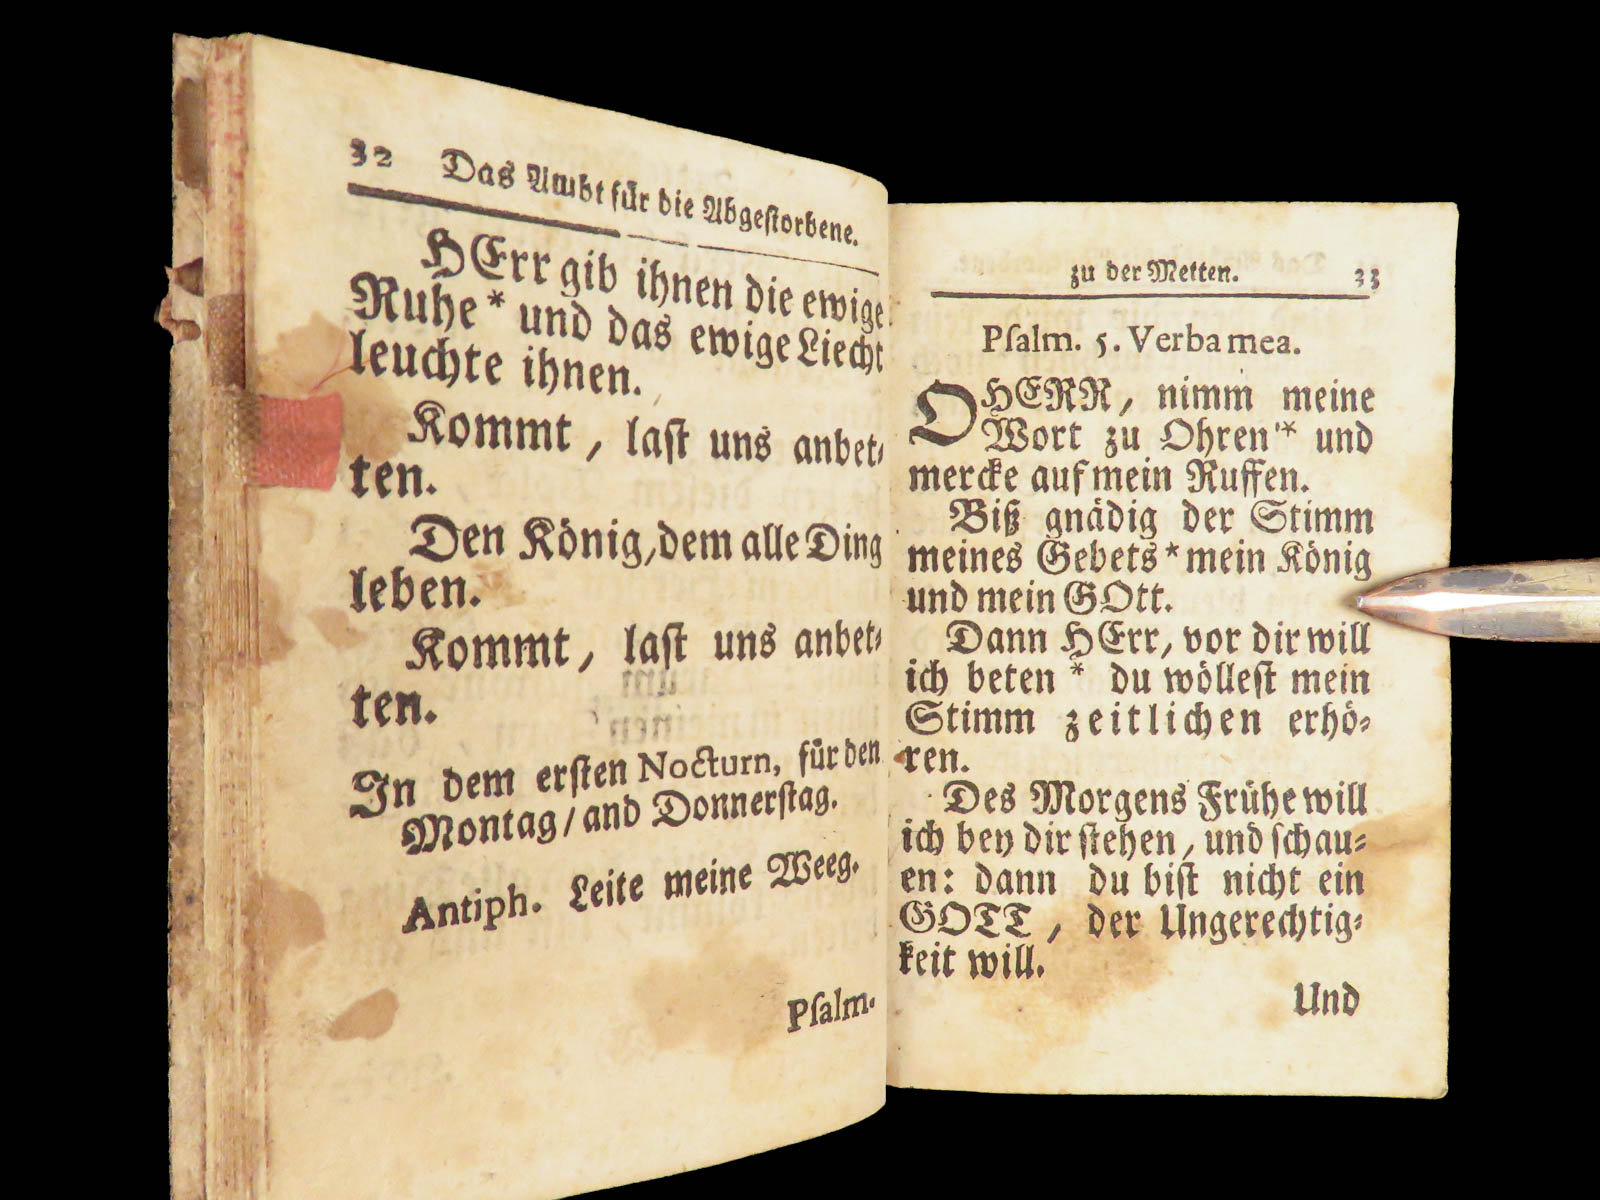 32 Das Ambt für die Abgestorbene.
HErr gib ihnen die ewige
Ruhe * und das ewige Liecht
leuchte ihnen.
Kommt, last uns anbet-
ten.
Den König, dem alle Ding
leben.
Kommt, last uns anbet-
ten.
In dem ersten Nocturn, für den
Montag / and Donnerstag.
Antiph. Leite meine Weeg.
Psalm.
zu der Metten. 33
Psalm. 5. Verba mea.
O HERR, nimm meine
Wort zu Ohren * und
mercke auf mein Ruffen.
Biß gnädig der Stimm
meines Gebets * mein König
und mein GOtt.
Dann HErr, vor dir will
ich beten * du wöllest mein
Stimm zeitlichen erhö-
ren.
Des Morgens Frühe will
ich bey dir stehen, und schau-
en: dann du bist nicht ein
GOTT, der Ungerechtig-
keit will.
Und